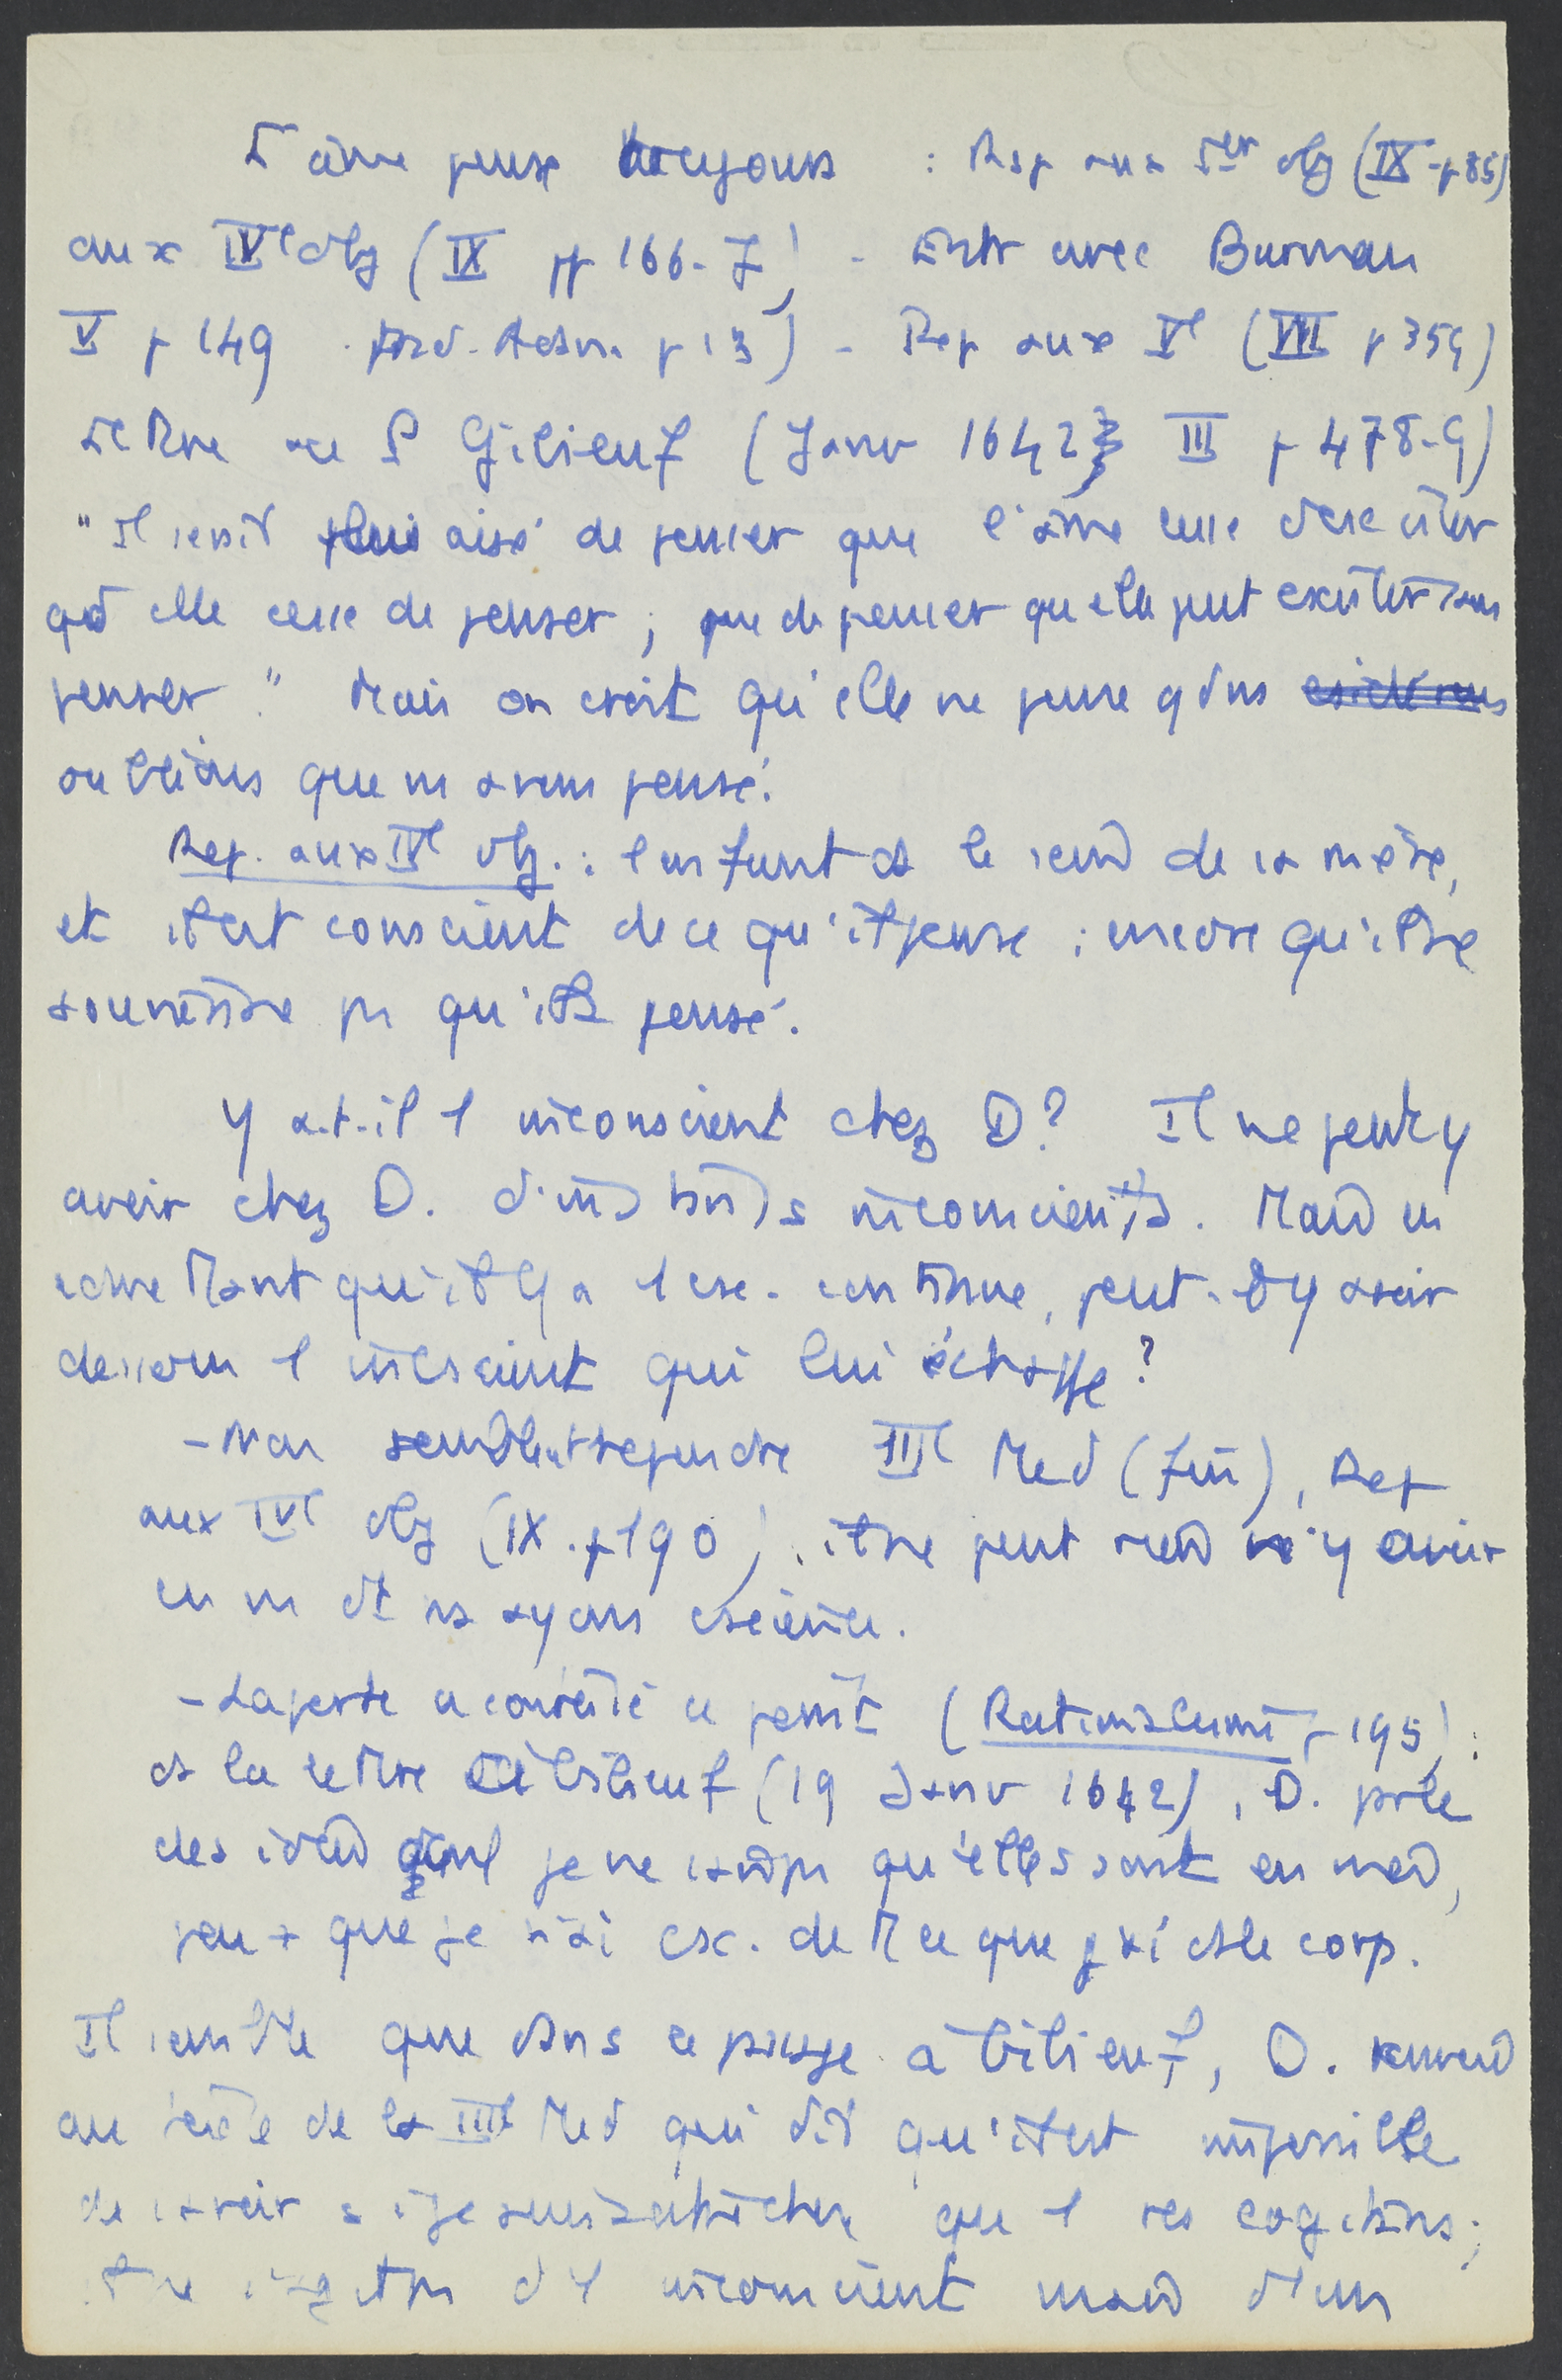 L'âme pense toujours : Rep aux 5es obj (IX - p 85)
aux IVe obj (IX pp 166-7) - Entr avec Burman
V p 149 . trad. Adam. p 13) - Rep aux Ve (VII p 359)
Lettre au P Gibieuf (Janv 1642 III p 478-9)
"Il serait plus aisé de penser que l'âme cesse d'exister
qd elle cesse de penser ; que de penser qu'elle peut exister sans
penser." Mais on croit qu'elle ne pense qd ns
oublions que ns avons pensé.
Rep. aux IVe obj. : l'enfant ds le sein de sa mère,
et il est conscient de ce qu'il pense ; encore qu'il ne
se souvienne pas qu'il a pensé.
Y a-t-il 1 inconscient chez D? Il ne peut y
avoir chez D. d'inconscients. Mais en
admettant qu'il y a 1 csc. continue, peut-il y avoir
dessous 1 inconscient qui lui échappe?
- Non semblent répondre IIIe Med (fin), Rep
aux IVe obj (IX . p 190) , il ne peut rien n'y avoir
en ns dt ns ayons cscience.
- Laporte a contesté ce point (Rationalisme p 195) :
ds la lettre à Gibieuf (19 Janv 1642), D. parle
des idées dont je ne sais pas qu'elles sont en moi,
peu que je n'ai csc. de tt ce que j'ai ds le corps.
Il semble que dans ce passage à Gibieuf, D.
au texte de la IIIe Med qui dit qu'il est impossible
de savoir si je suis autre chose que 1 res cogitans ;
il ne s'agit pas d'1 inconscient mais d'un